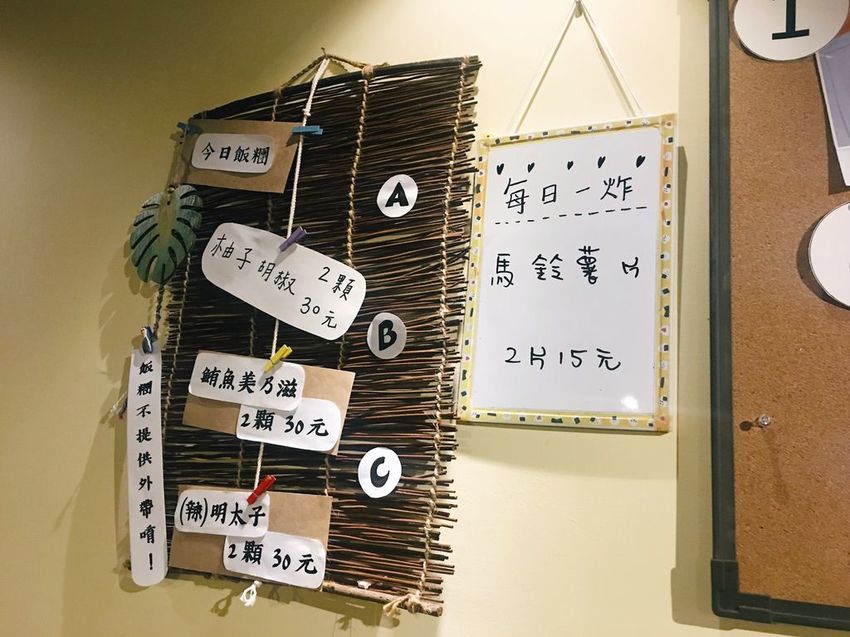 今日飯糰
A
柚子胡椒 2顆
30元
B
鮪魚美乃滋
2顆 30元
C
(辣)明太子
2顆 30元
飯糰不提供外帶唷！
每日一炸
馬鈴薯片
2片15元
1